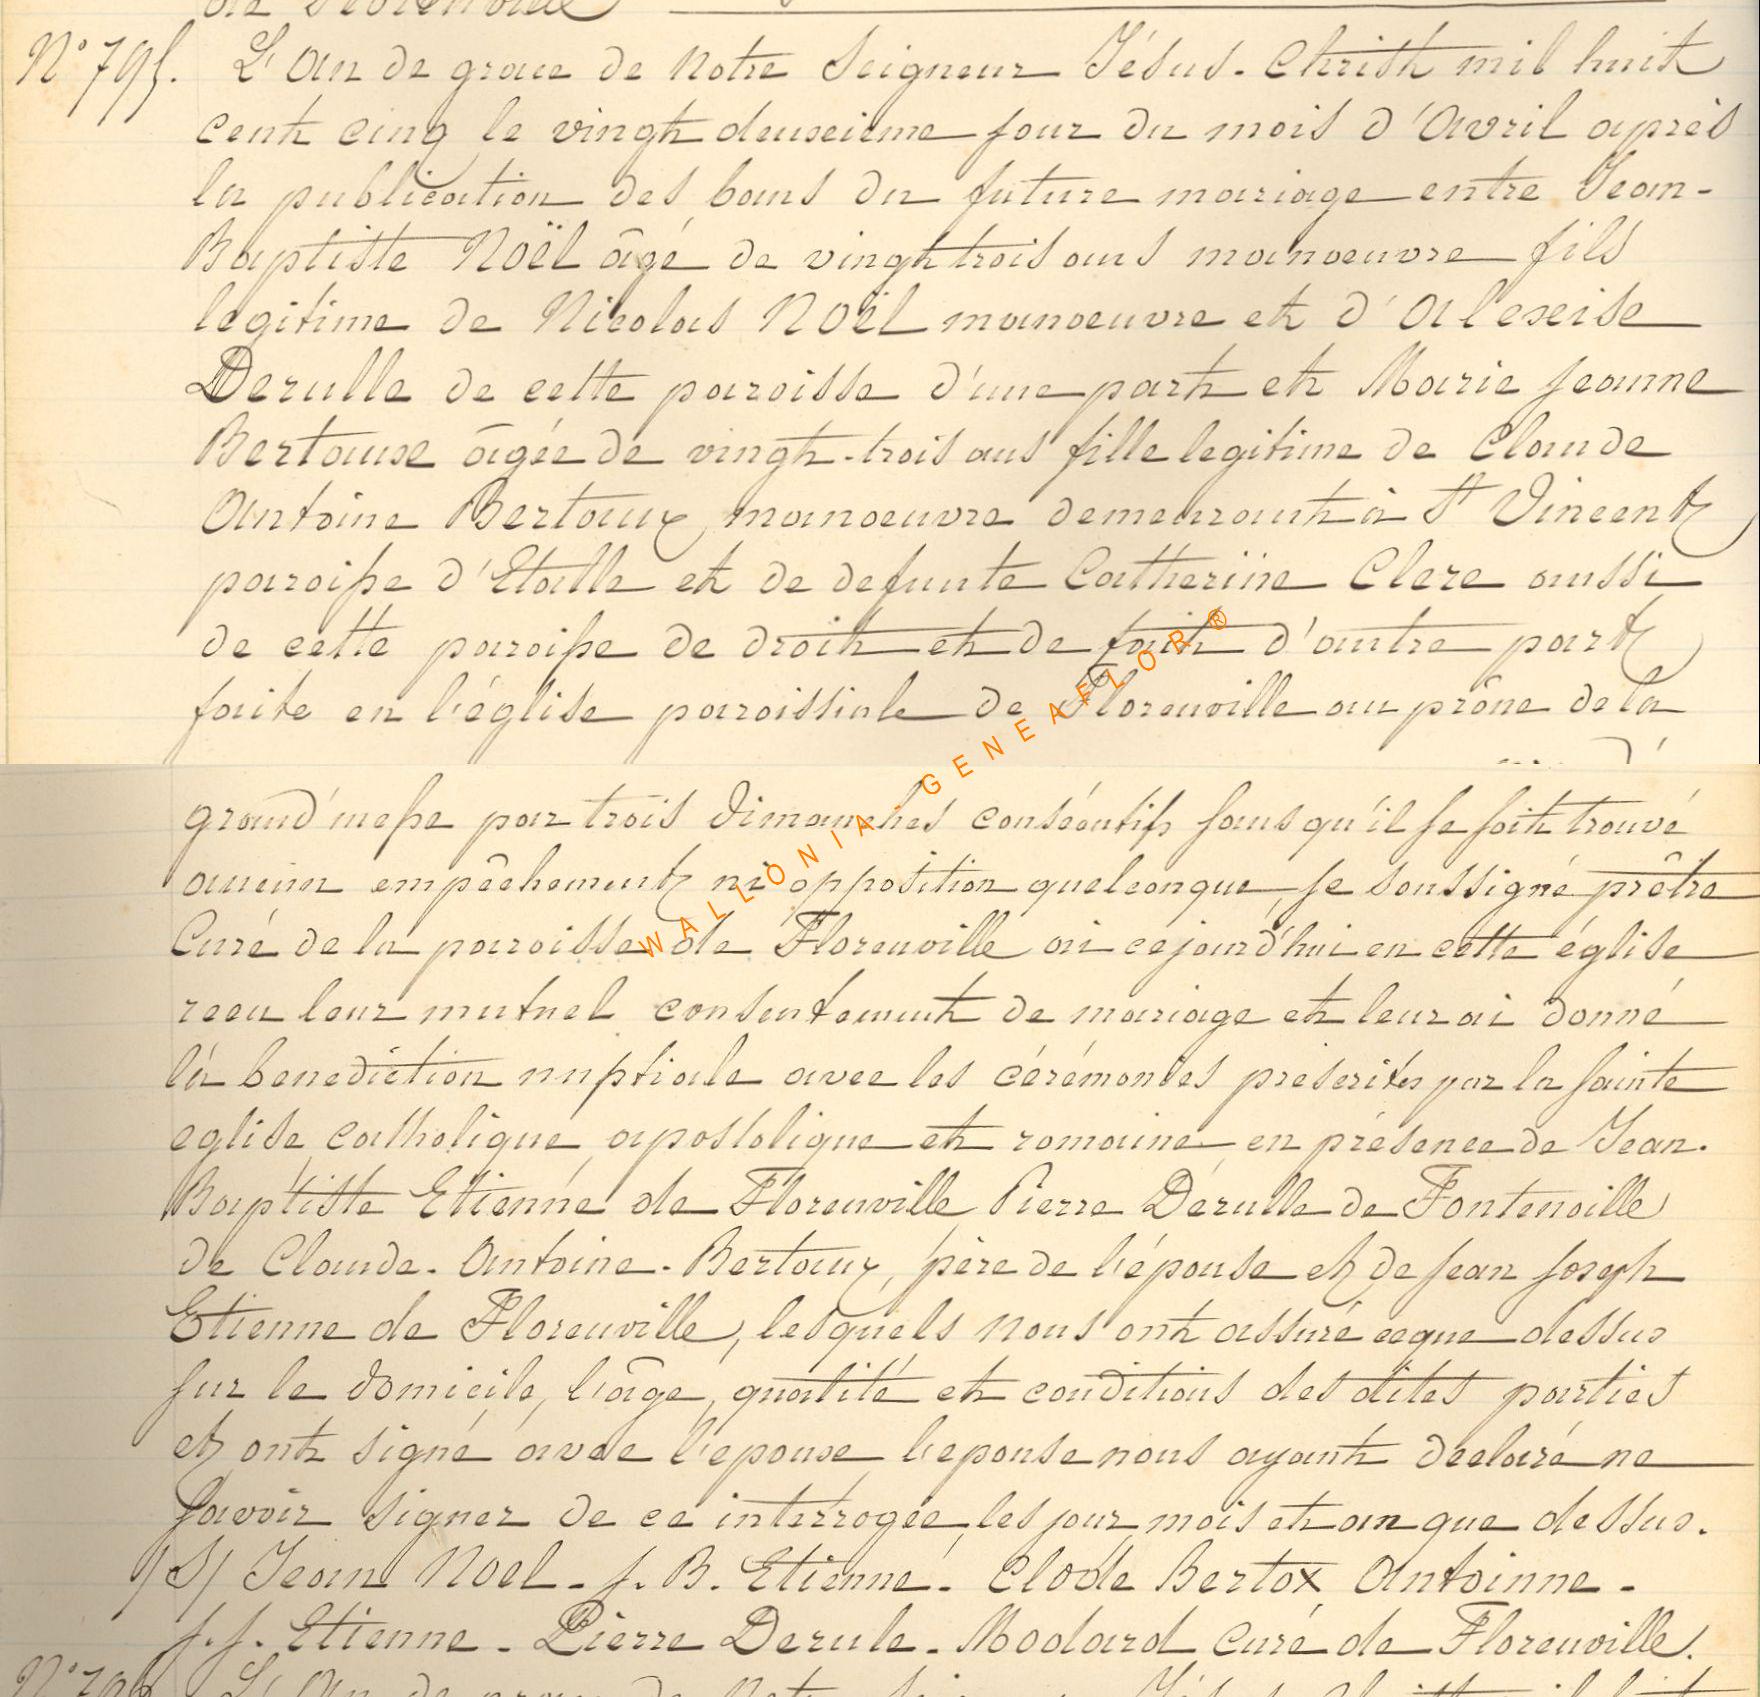 de Florenville
N° 795. L'An de grace de Notre Seigneur Jésus-Christ mil huit
cent cinq le vingt deuxième jour du mois d'Avril après
la publication des bans du future mariage entre Jean-
Baptiste Noël âgé de vingt trois ans manoeuvre fils
legitime de Nicolas Noël manoeuvre et d'Alexise
Derulle de cette paroisse d'une part et Marie Jeanne
Bertaux âgée de vingt-trois ans fille legitime de Claude
Antoine Bertaux manoeuvre demeurant à St Vincent
paroisse d'Etalle et de defunte Catherine Clere aussi
de cette paroisse de droit et de fait d'autre part
faite en l'église paroissiale de Florenville au prône de la
grand'messe par trois dimanches conséqutifs sans qu'il se soit trouvé
aucun empêchement ni opposition quelconque, je soussigné prêtre
Curé de la paroisse de Florenville ai cejourd'hui en cette église
recu leur mutuel consentement de mariage et leur ai donné
là benediction nuptiale avec les cérémonies préscrites par la sainte
eglise catholique apostolique et romaine en présence de Jean-
Baptiste Etienne de Florenville, Pierre Dérulle de Fontenoille
de Claude-Antoine-Bertaux, père de l'épouse et de Jean Joseph
Etienne de Florenville, lesquels nous ont assuré ceque dessus
sur le domicile, l'âge, qualité et conditions des dites parties
et ont signé avec l'epoux l'epouse nous ayant declaré ne
savoir signer de ce interrogée les jour mois et an que dessus.
/S/ Jean Noel - J. B. Etienne - Clode Bertox Antoinne -
J. J. Etienne - Pierre Derule - Modard Curé de Florenville.
N° 796 L'An de grace de Notre
WALLONIA GENEAFLOR ®